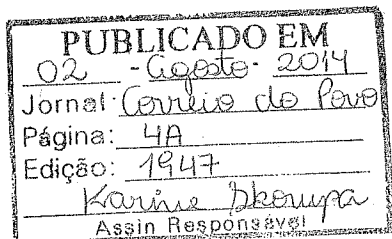 PUBLICADO EM
02 - Agosto - 2014
Jornal: Correio do Povo
Página: 4A
Edição: 1947
Karine Skorupa
Assin Responsável